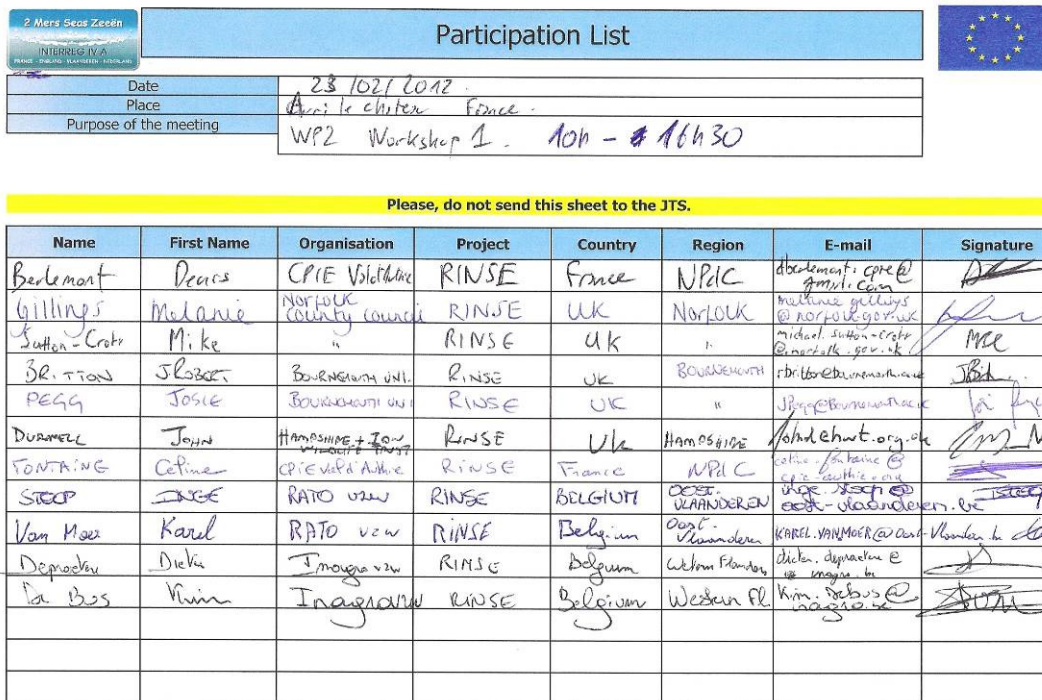 2 Mers Seas Zeeën
INTERREG IV A
FRANCE - ENGLAND - VLAANDEREN - NEDERLAND
Participation List
Date 23/02/2012.
Place France.
Purpose of the meeting WP2 Workshop 1. 10h - 16h30
Please, do not send this sheet to the JTS.
Name First Name Organisation Project Country Region E-mail Signature
Berlemont Denis CPIE RINSE France NPdC
Gillings Melanie Norfolk county council RINSE UK Norfolk melanie.gillings@norfolk.gov.uk
Sutton-Croft Mike " RINSE UK " michael.sutton-croft@norfolk.gov.uk
BRITTON J ROBERT BOURNEMOUTH UNI. RINSE UK BOURNEMOUTH rbritton@bournemouth.ac.uk
PEGG JOSIE BOURNEMOUTH UNI RINSE UK " JPegg@Bournemouth.ac.uk
DURNELL JOHN HAMPSHIRE + IOW WILDLIFE TRUST RINSE UK HAMPSHIRE johnd@hwt.org.uk
FONTAINE Celine CPIE Val d'Authie RINSE France NPdC
STOOP INGE RATO vzw RINSE BELGIUM OOST-VLAANDEREN inge.stoop@oost-vlaanderen.be
Van Moer Karel RATO vzw RINSE Belgium Oost-Vlaanderen KAREL.VANMOER@Oost-Vlaanderen.be
Depraetere Dieter Inagro vzw RINSE Belgium Western Flanders
De Bus Kim Inagro vzw RINSE Belgium Western Fl Kim.debus@inagro.be